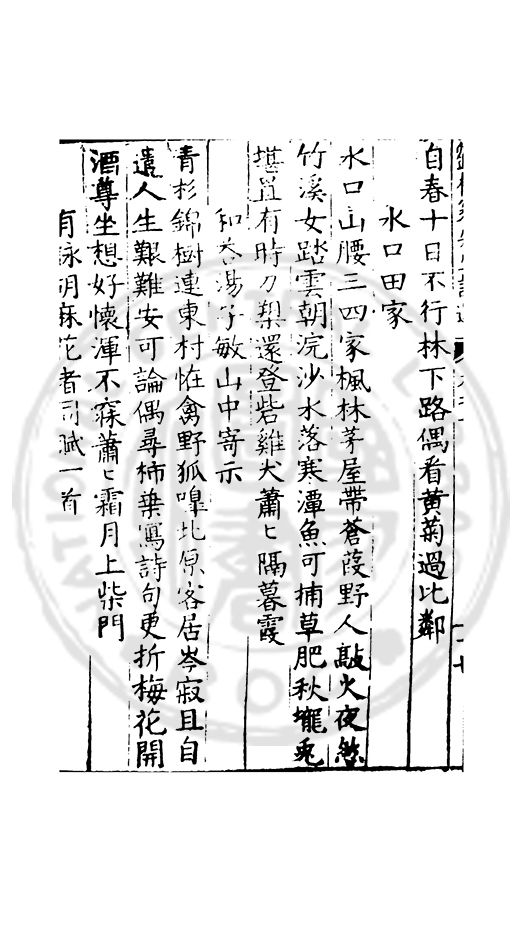 自春十日不行林下路偶看黄菊過比鄰
水口田家
水口山腰三四家楓林茅屋帶蒼葭野人敲火夜然
竹溪女踏雲朝浣沙水落寒潭魚可捕草肥秋壠兎
堪罝有時刀還登砦雞犬蕭〻隔暮霞
和答湯子敏山中寄示
青杉錦樹連東村怪禽野狐嘷北原客居岑寂且自
遣人生艱難安可論偶尋柿葉寫詩句更折梅花開
酒尊坐想好懷渾不寐蕭〻霜月上柴門
有詠胡麻花者同賦一首